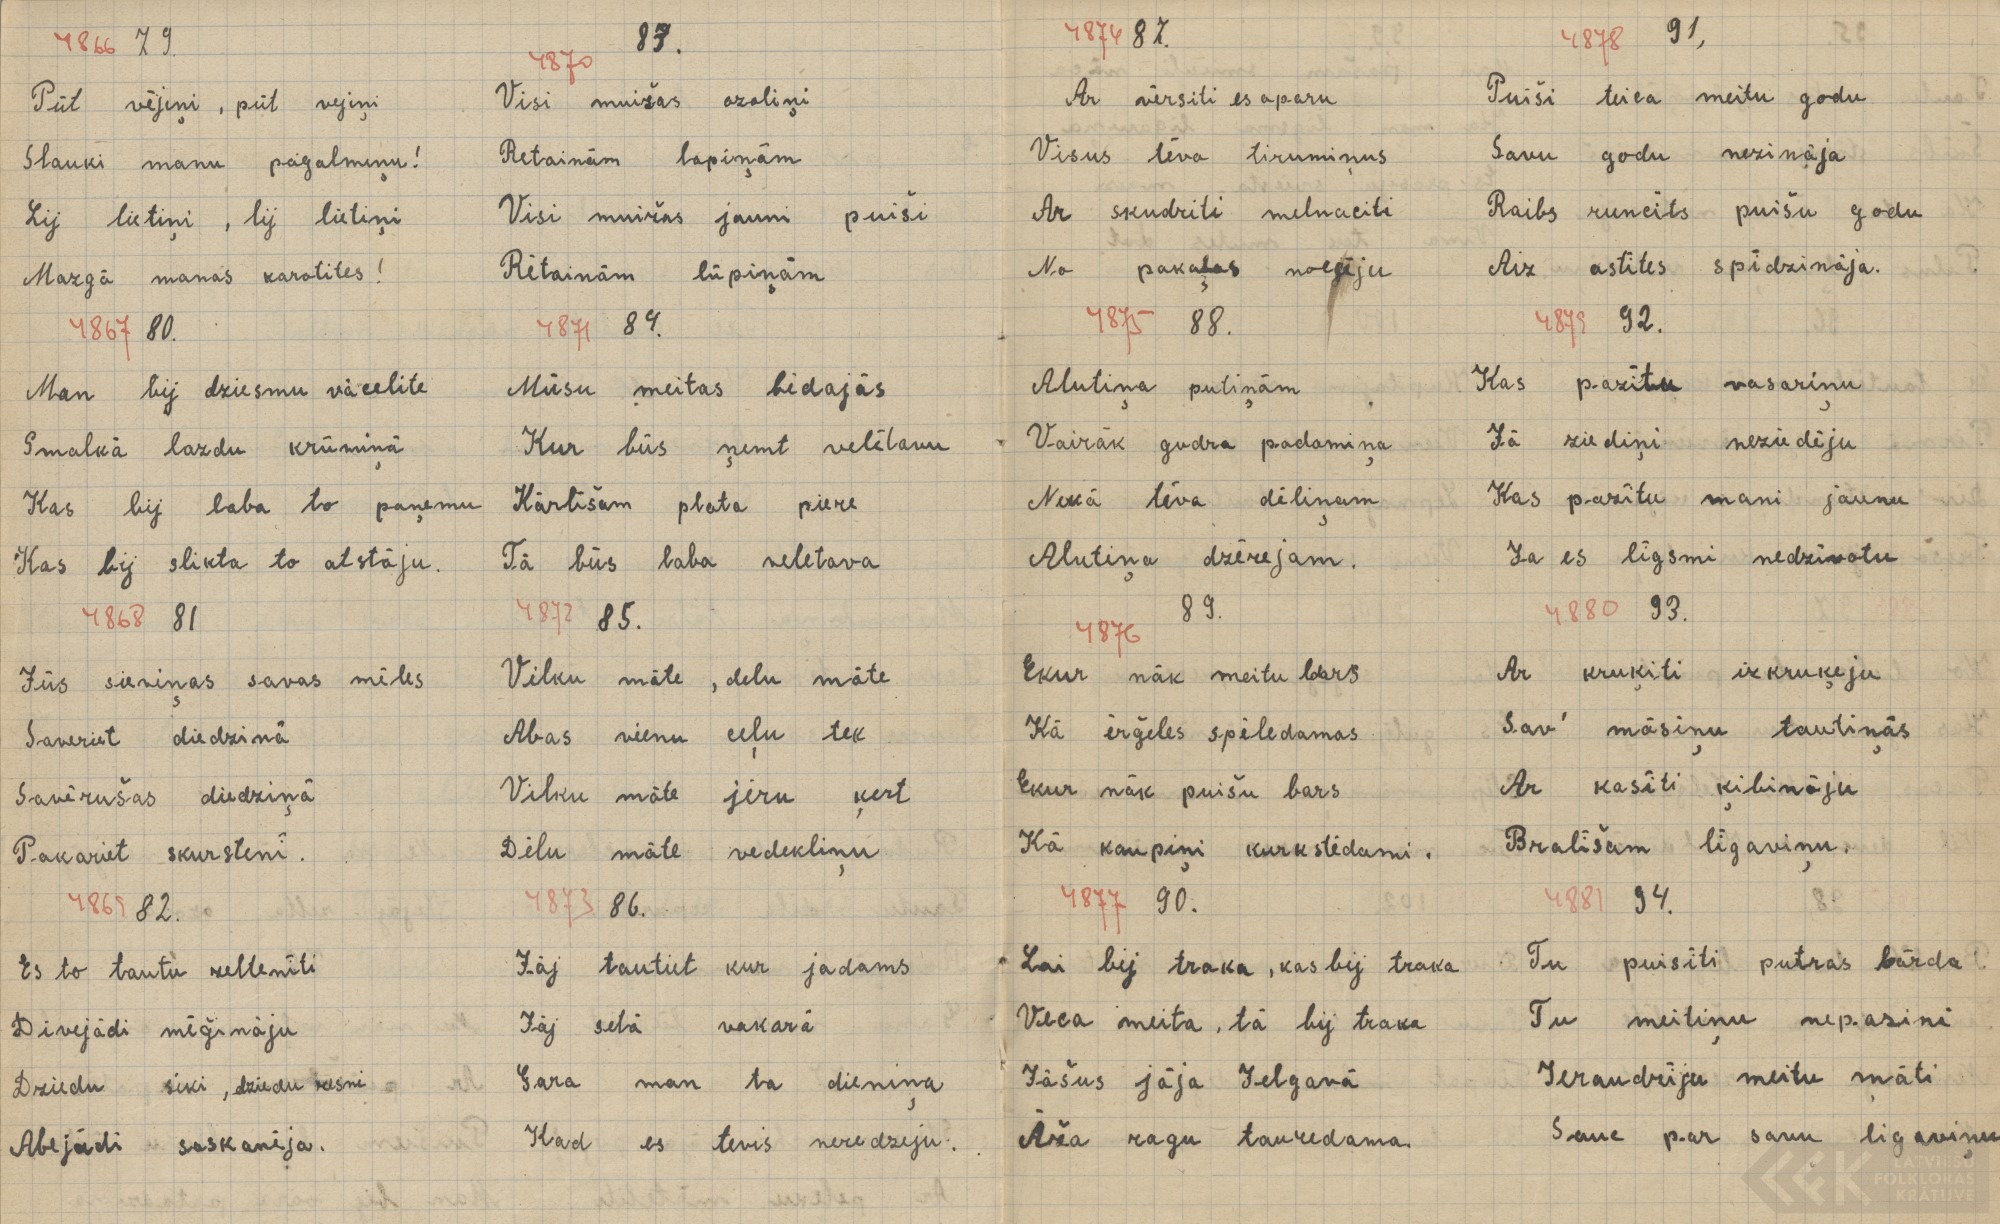 4866 79.
Pūt vējiņi, pūt vejiņi
Slauki manu pagalmiņu!
Lij lietiņi, lij lietiņi
Mazgā manas karotites!
4867 80.
Man bij dziesmu vācelite
Smalkā lazdu krūmiņā
Kas bij laba to paņemu
Kas bij slikta to atstāju.
4868 81
Jūs sieviņas savas mēles
Saveriet diedzinā
Savērušas diedziņā
Pakariet skurstenī.
4869 82.
Es to tautu zelteniti
Divejādi mēģināju
Dziedu sīki, dziedu resni
Abejādi saskanēja.
4870 83.
Visi muižas ozoliņi
Retainām lapiņām
Visi muižas jauni puiši
Rētainām lūpiņām
4871 84.
Mūsu meitas bēdajās
Kur būs ņemt velētavu
Kārlīšam plata piere
Tā būs laba veletava
4872 85.
Vilku māte, delu māte
Abas vienu ceļu tek
Vilku māte jēru ķert
Dēlu māte vedekliņu
4873 86.
Jāj tautiet kur jadams
Jāj setā vakarā
Gara man ta dieniņa
Kad es tevis neredzeju.
4874 87.
Ar vērsiti es aparu
Visus tēva tirumiņus
Ar skudriti melnaciti
No pakaļas noecēju
4875 88.
Alutiņa putiņām
Vairāk gudra padomiņa
Nekā tēva dēliņam
Alutiņa dzērejam.
4876 89.
Ekur nāk meitu bars
Kā ērģeles spēledamas
Ekur nāk puišu bars
Kā kaupiņi kurkstēdami.
4877 90.
Lai bij traka, kas bij traka
Veca meita, tā bij traka
Jāšus jāja Jelgavā
Āža ragu tauredama.
4878 91,
Puiši teica meitu godu
Savu godu nezināja
Raibs runcits puišu godu
Aiz astites spīdzināja.
4879 92.
Kas pazītu vasariņu
Jā ziediņi neziedēju
Kas pazītu mani jaunu
Ja es līgsmi nedzīvotu
4880 93.
Ar kruķiti izkruķeju
Sav' māsiņu tautiņās
Ar kasīti ķibināju
Brališam līgaviņu.
4881 94.
Tu puisīti putras bārda
Tu meitiņu nepazini
Ieraudzīju meitu māti
Sauc par savu ligaviņu
LATVIEŠU
FOLKLORAS
KRĀTUVE